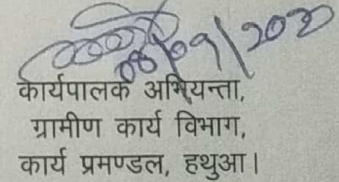 08/09/2020
कार्यपालक अभियन्ता,
ग्रामीण कार्य विभाग,
कार्य प्रमण्डल, हथुआ।